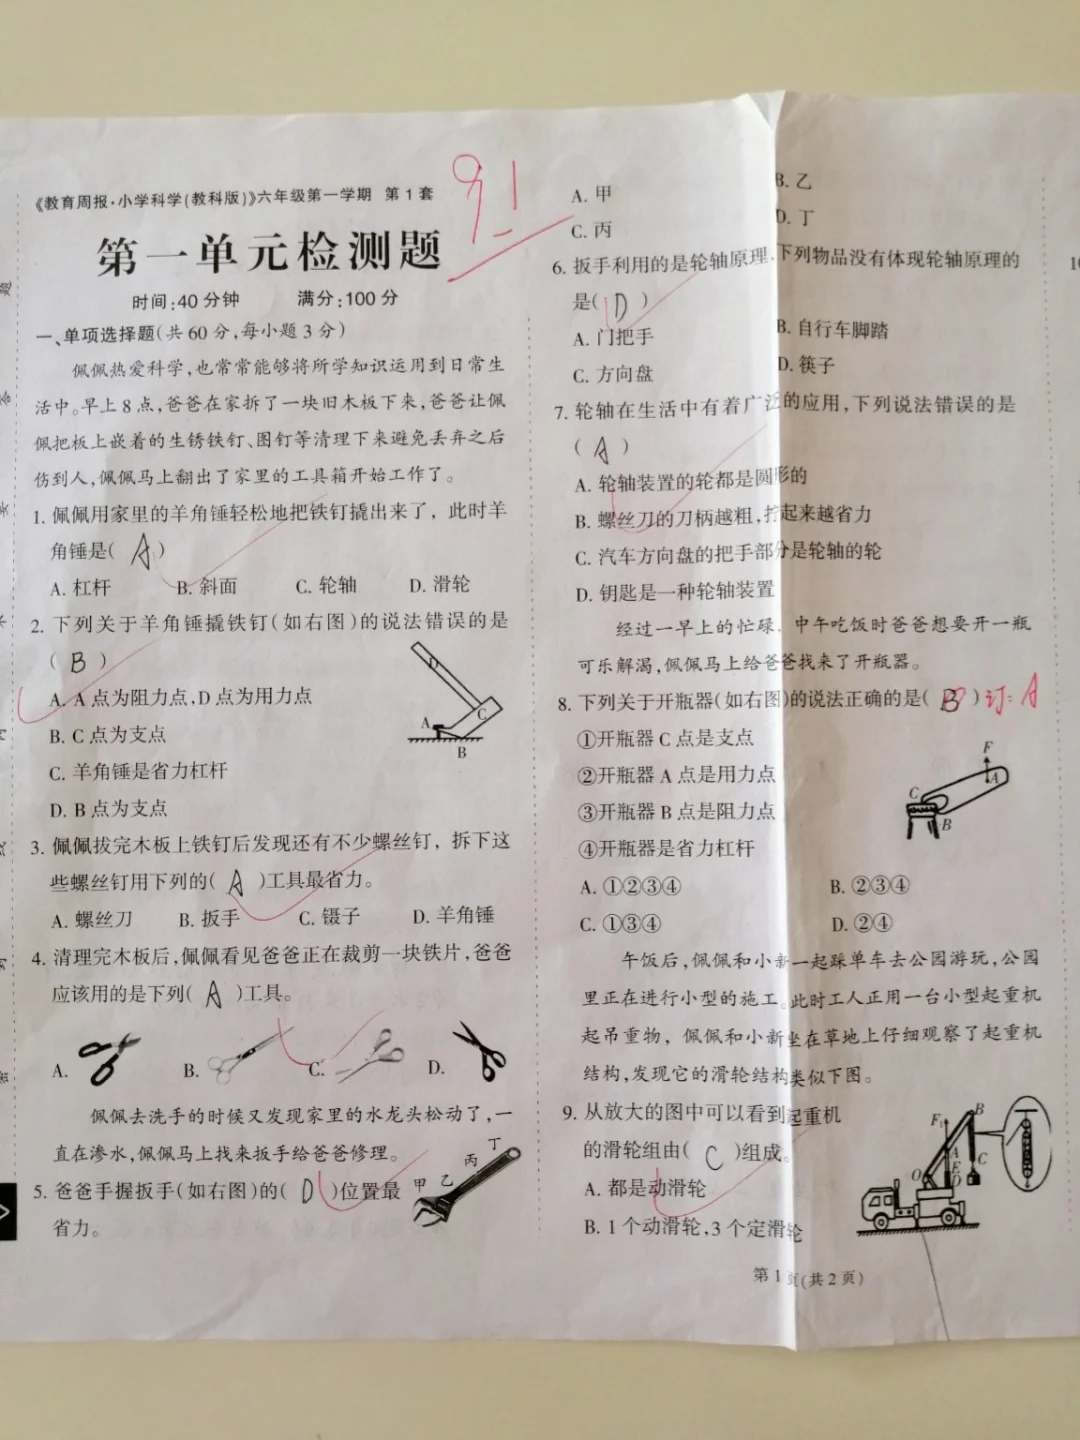 《教育周报·小学科学(教科版)》六年级第一学期 第1套
91
第一单元检测题
时间:40分钟 满分:100分
一、单项选择题(共60分,每小题3分)
佩佩热爱科学,也常常能够将所学知识运用到日常生
活中。早上8点,爸爸在家拆了一块旧木板下来,爸爸让佩
佩把板上嵌着的生锈铁钉、图钉等清理下来避免丢弃之后
伤到人,佩佩马上翻出了家里的工具箱开始工作了。
1. 佩佩用家里的羊角锤轻松地把铁钉撬出来了，此时羊
角锤是( A )
A. 杠杆 B. 斜面 C. 轮轴 D. 滑轮
2. 下列关于羊角锤撬铁钉(如右图)的说法错误的是
( B )
A. A点为阻力点,D点为用力点
B. C点为支点
C. 羊角锤是省力杠杆
D. B点为支点
D
C
A
B
3. 佩佩拔完木板上铁钉后发现还有不少螺丝钉，拆下这
些螺丝钉用下列的( A )工具最省力。
A. 螺丝刀 B. 扳手 C. 镊子 D. 羊角锤
4. 清理完木板后,佩佩看见爸爸正在裁剪一块铁片,爸爸
应该用的是下列( A )工具。
A. B. C. D.
佩佩去洗手的时候又发现家里的水龙头松动了,一
直在渗水,佩佩马上找来扳手给爸爸修理。
5. 爸爸手握扳手(如右图)的( D )位置最
省力。
甲 乙 丙 丁
A. 甲 B. 乙
C. 丙 D. 丁
6. 扳手利用的是轮轴原理,下列物品没有体现轮轴原理的
是( D )
A. 门把手 B. 自行车脚踏
C. 方向盘 D. 筷子
7. 轮轴在生活中有着广泛的应用,下列说法错误的是
( A )
A. 轮轴装置的轮都是圆形的
B. 螺丝刀的刀柄越粗,拧起来越省力
C. 汽车方向盘的把手部分是轮轴的轮
D. 钥匙是一种轮轴装置
经过一早上的忙碌，中午吃饭时爸爸想要开一瓶
可乐解渴,佩佩马上给爸爸找来了开瓶器。
8. 下列关于开瓶器(如右图)的说法正确的是( B ) 订: A
①开瓶器C点是支点
②开瓶器A点是用力点
③开瓶器B点是阻力点
④开瓶器是省力杠杆
F
A
C
B
A. ①②③④ B. ②③④
C. ①③④ D. ②④
午饭后,佩佩和小新一起踩单车去公园游玩,公园
里正在进行小型的施工。此时工人正用一台小型起重机
起吊重物，佩佩和小新坐在草地上仔细观察了起重机
结构,发现它的滑轮结构类似下图。
9. 从放大的图中可以看到起重机
的滑轮组由( C )组成。
A. 都是动滑轮
B. 1个动滑轮,3个定滑轮
B
F₁
A
C
E
O
D
第1页(共2页)
10